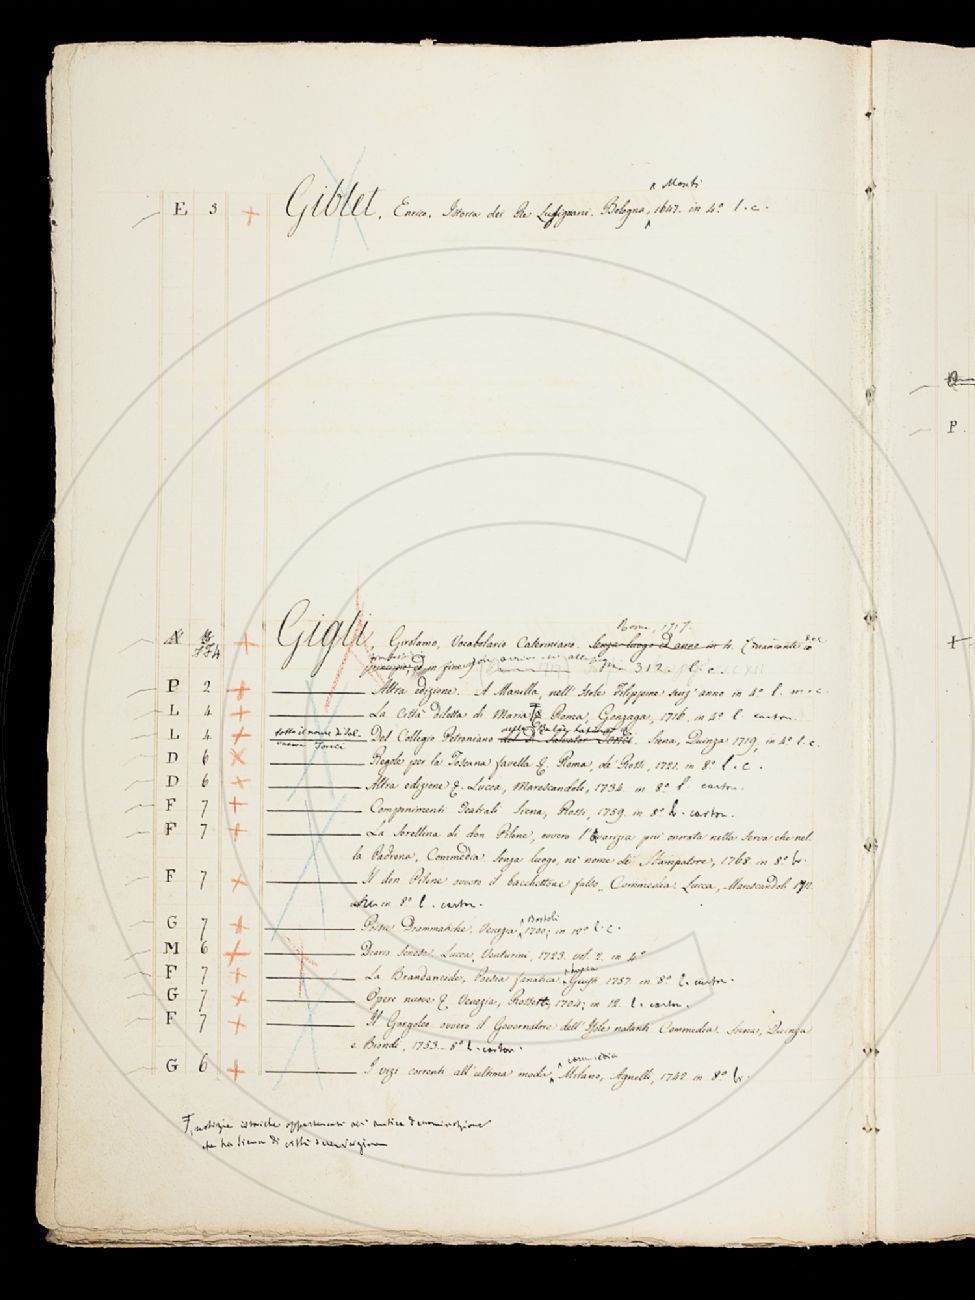 Monti
E 3 Giblet, Enrico, Istoria dei Re Lusignani. Bologna, 1647. in 4º l. c.
Roma, 1717.
Gigli, Girolamo, Vocabolario Cateriniano. Senza luogo ed anno in 4. mancante
principio, ed in fine 312. l. c.
P 2 Altra edizione. A Manilla, nell'Isole Filippine senz'anno in 4º l.
L 4 La Città diletta di Maria Roma, Gonzaga, 1716. in 4º l. carton.
L 4 Del Collegio Petroniano Siena, Quinza 1719. in 4º l. c.
D 6 Regole per la Toscana favella &. Roma, de' Rossi, 1721. in 8º l. c.
D 6 Altra edizione &. Lucca, Marescandoli, 1734. in 8º l. carton.
F 7 Componimenti Teatrali Siena, Rossi, 1759. in 8º l. carton.
F 7 La Sorellina di don Pilone, ovvero l'Avarizia più onorata nella Serva che nel-
la Padrona, Commedia. Senza luogo, nè nome de Stampatore, 1768 in 8º
F 7 Il don Pilone ovvero il bacchettone falso, Commedia. Lucca, Marescandoli
in 8º l. carton.
Bortoli
G 7 Poesie Drammatiche. Venezia, 1700, in 12º l. c.
M 6 Diario Senese. Lucca, Venturini, 1723. vol. 2. in 4º
F 7 La Brandaneide, Poesia fanatica 1757. in 8º l. carton.
G 7 Opere nuove &. Venezia, Rossetti, 1704, in 12. l. carton.
F 7 Il Gorgoleo ovvero il Governatore dell'Isole natanti Commedia. Siena, Quinza
e Biondi, 1753. 8º l. carton.
commedia
G 6 I vizi correnti all'ultima moda, Milano, Agnelli, 1742 in 8º
notizie istoriche appartenenti all'antica denominazione
che ha Siena di città